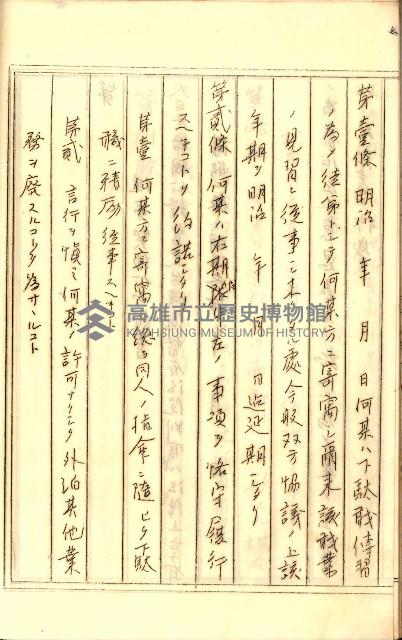 第壹條 明治 年 月 日何某ハ下駄職傳習
ノ為メ徒弟トシテ何某方ニ寄寓シ爾来該職業
ノ見習ニ従事シ来 処今般双方協議ノ上該
年期ヲ明治 年 月 日迄延期シタリ
第貳條 何某ハ右期限内左ノ事項ヲ恪守履行
スヘキコトヲ約諾シタリ
第壹 何某方ニ寄寓 総テ同人ノ指命ニ随ヒ下駄
職ニ精励従事スヘキコト
第貳 言行ヲ慎ミ何某ノ許可ナクシテ外泊其他業
務ヲ廃スルコトヲ為サヽルコト
高雄市立歷史博物館
KAOHSIUNG MUSEUM OF HISTORY